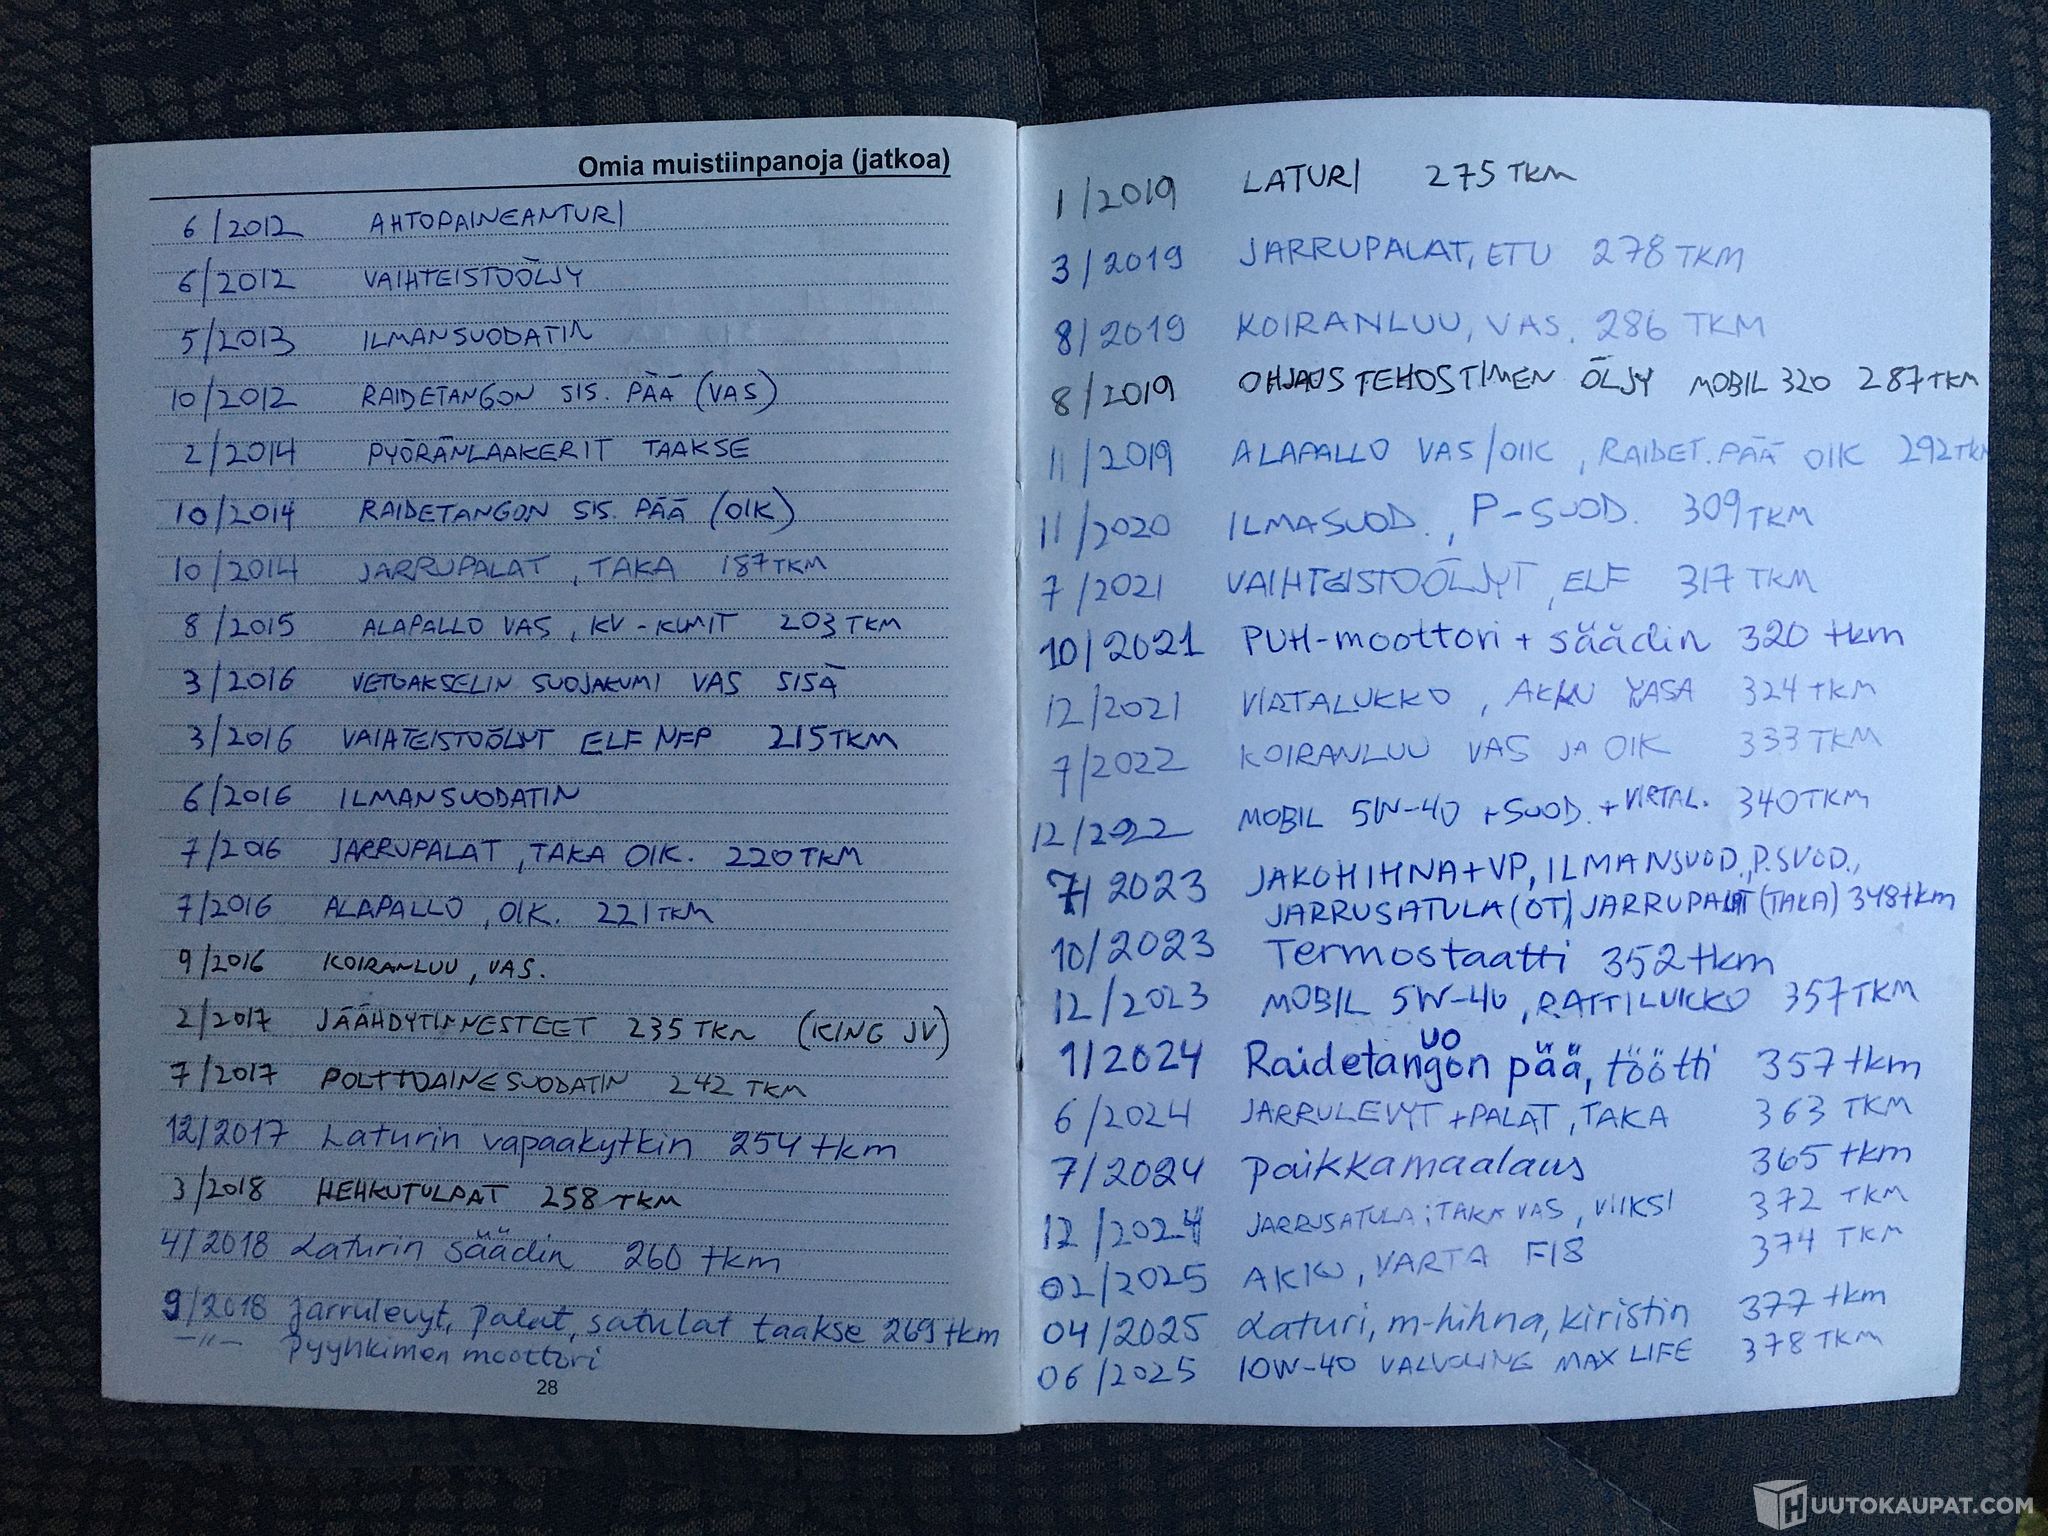 Omia muistiinpanoja (jatkoa)
6/2012 AHTOPAINEANTURI
6/2012 VAIHTEISTOÖLJY
5/2013 ILMANSUODATIN
10/2012 RAIDETANGON SIS. PÄÄ (VAS)
2/2014 PYÖRÄNLAAKERIT TAAKSE
10/2014 RAIDETANGON SIS. PÄÄ (OIK)
10/2014 JARRUPALAT, TAKA 187TKM
8/2015 ALAPALLO VAS, KV-KUMIT 203TKM
3/2016 VETOAKSELIN SUOJAKUMI VAS SISÄ
3/2016 VAIHTEISTOÖLJYT ELF NFP 215TKM
6/2016 ILMANSUODATIN
7/2016 JARRUPALAT, TAKA OIK. 220TKM
7/2016 ALAPALLO, OIK. 221TKM
9/2016 KOIRANLUU, VAS.
2/2017 JÄÄHDYTINNESTEET 235TKM (KING JV)
7/2017 POLTTOAINESUODATIN 242 TKM
12/2017 Laturin vapaakytkin 254 tkm
3/2018 HEHKUTULPAT 258 TKM
4/2018 Laturin säädin 260 tkm
9/2018 Jarrulevyt, palat, satulat taakse 269 tkm
-"- Pyyhkimen moottori
28
1/2019 LATURI 275 TKM
3/2019 JARRUPALAT, ETU 278 TKM
8/2019 KOIRANLUU, VAS. 286 TKM
8/2019 OHJAUSTEHOSTIMEN ÖLJY MOBIL 320 287TKM
11/2019 ALAPALLO VAS/OIK, RAIDET.PÄÄ OIK 292TKM
11/2020 ILMASUOD., P-SUOD. 309TKM
7/2021 VAIHTEISTOÖLJYT, ELF 317 TKM
10/2021 PUH-moottori + säädin 320 tkm
12/2021 VIRTALUKKO, AKUN 324 TKM
7/2022 KOIRANLUU VAS JA OIK 333 TKM
12/2022 MOBIL 5W-40 + SUOD. + VIRTAL. 340TKM
7/2023 JAKOHIHNA+VP, ILMANSUOD., P.SUOD.,
JARRUSATULA (OT) JARRUPALAT (TAKA) 348tkm
10/2023 Termostaatti 352 tkm
12/2023 MOBIL 5W-40, RATTILUKKO 357TKM
UO
1/2024 Raidetangon pää, töötti 357 tkm
6/2024 JARRULEVYT + PALAT, TAKA 363 TKM
7/2024 paikkamaalaus 365 tkm
12/2024 JARRUSATULA; TAKA VAS, VIIKSI 372 TKM
02/2025 AKKU, VARTA F18 374 TKM
04/2025 Laturi, m-hihna, kiristin 377 tkm
06/2025 10W-40 VALVOLINE MAX LIFE 378 TKM
HUUTOKAUPAT.COM